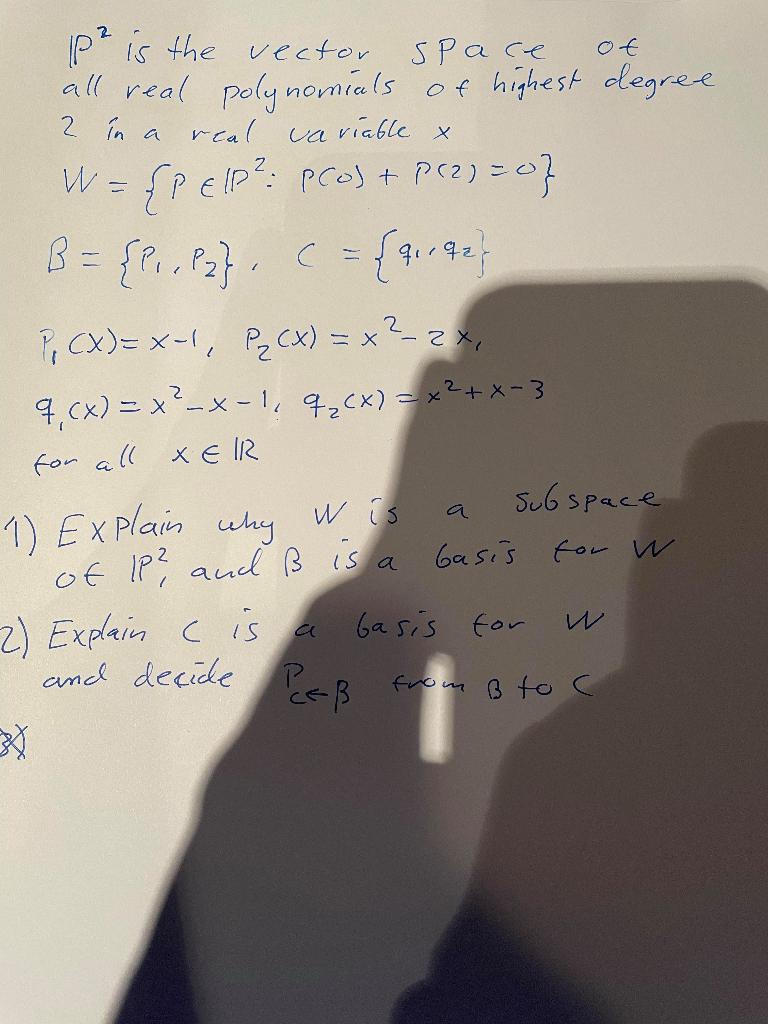 ℙ² is the vector space of
all real polynomials of highest degree
2 in a real variable x
W = {P ∈ ℙ²: P(0) + P(2) = 0}
B = {P₁, P₂}, C = {q₁, q₂}
P₁(x) = x-1, P₂(x) = x² - 2x,
q₁(x) = x² - x - 1, q₂(x) = x² + x - 3
for all x ∈ ℝ
1) Explain why W is a subspace
of ℙ², and B is a basis for W
2) Explain C is a basis for W
and decide P_{C←B} from B to C